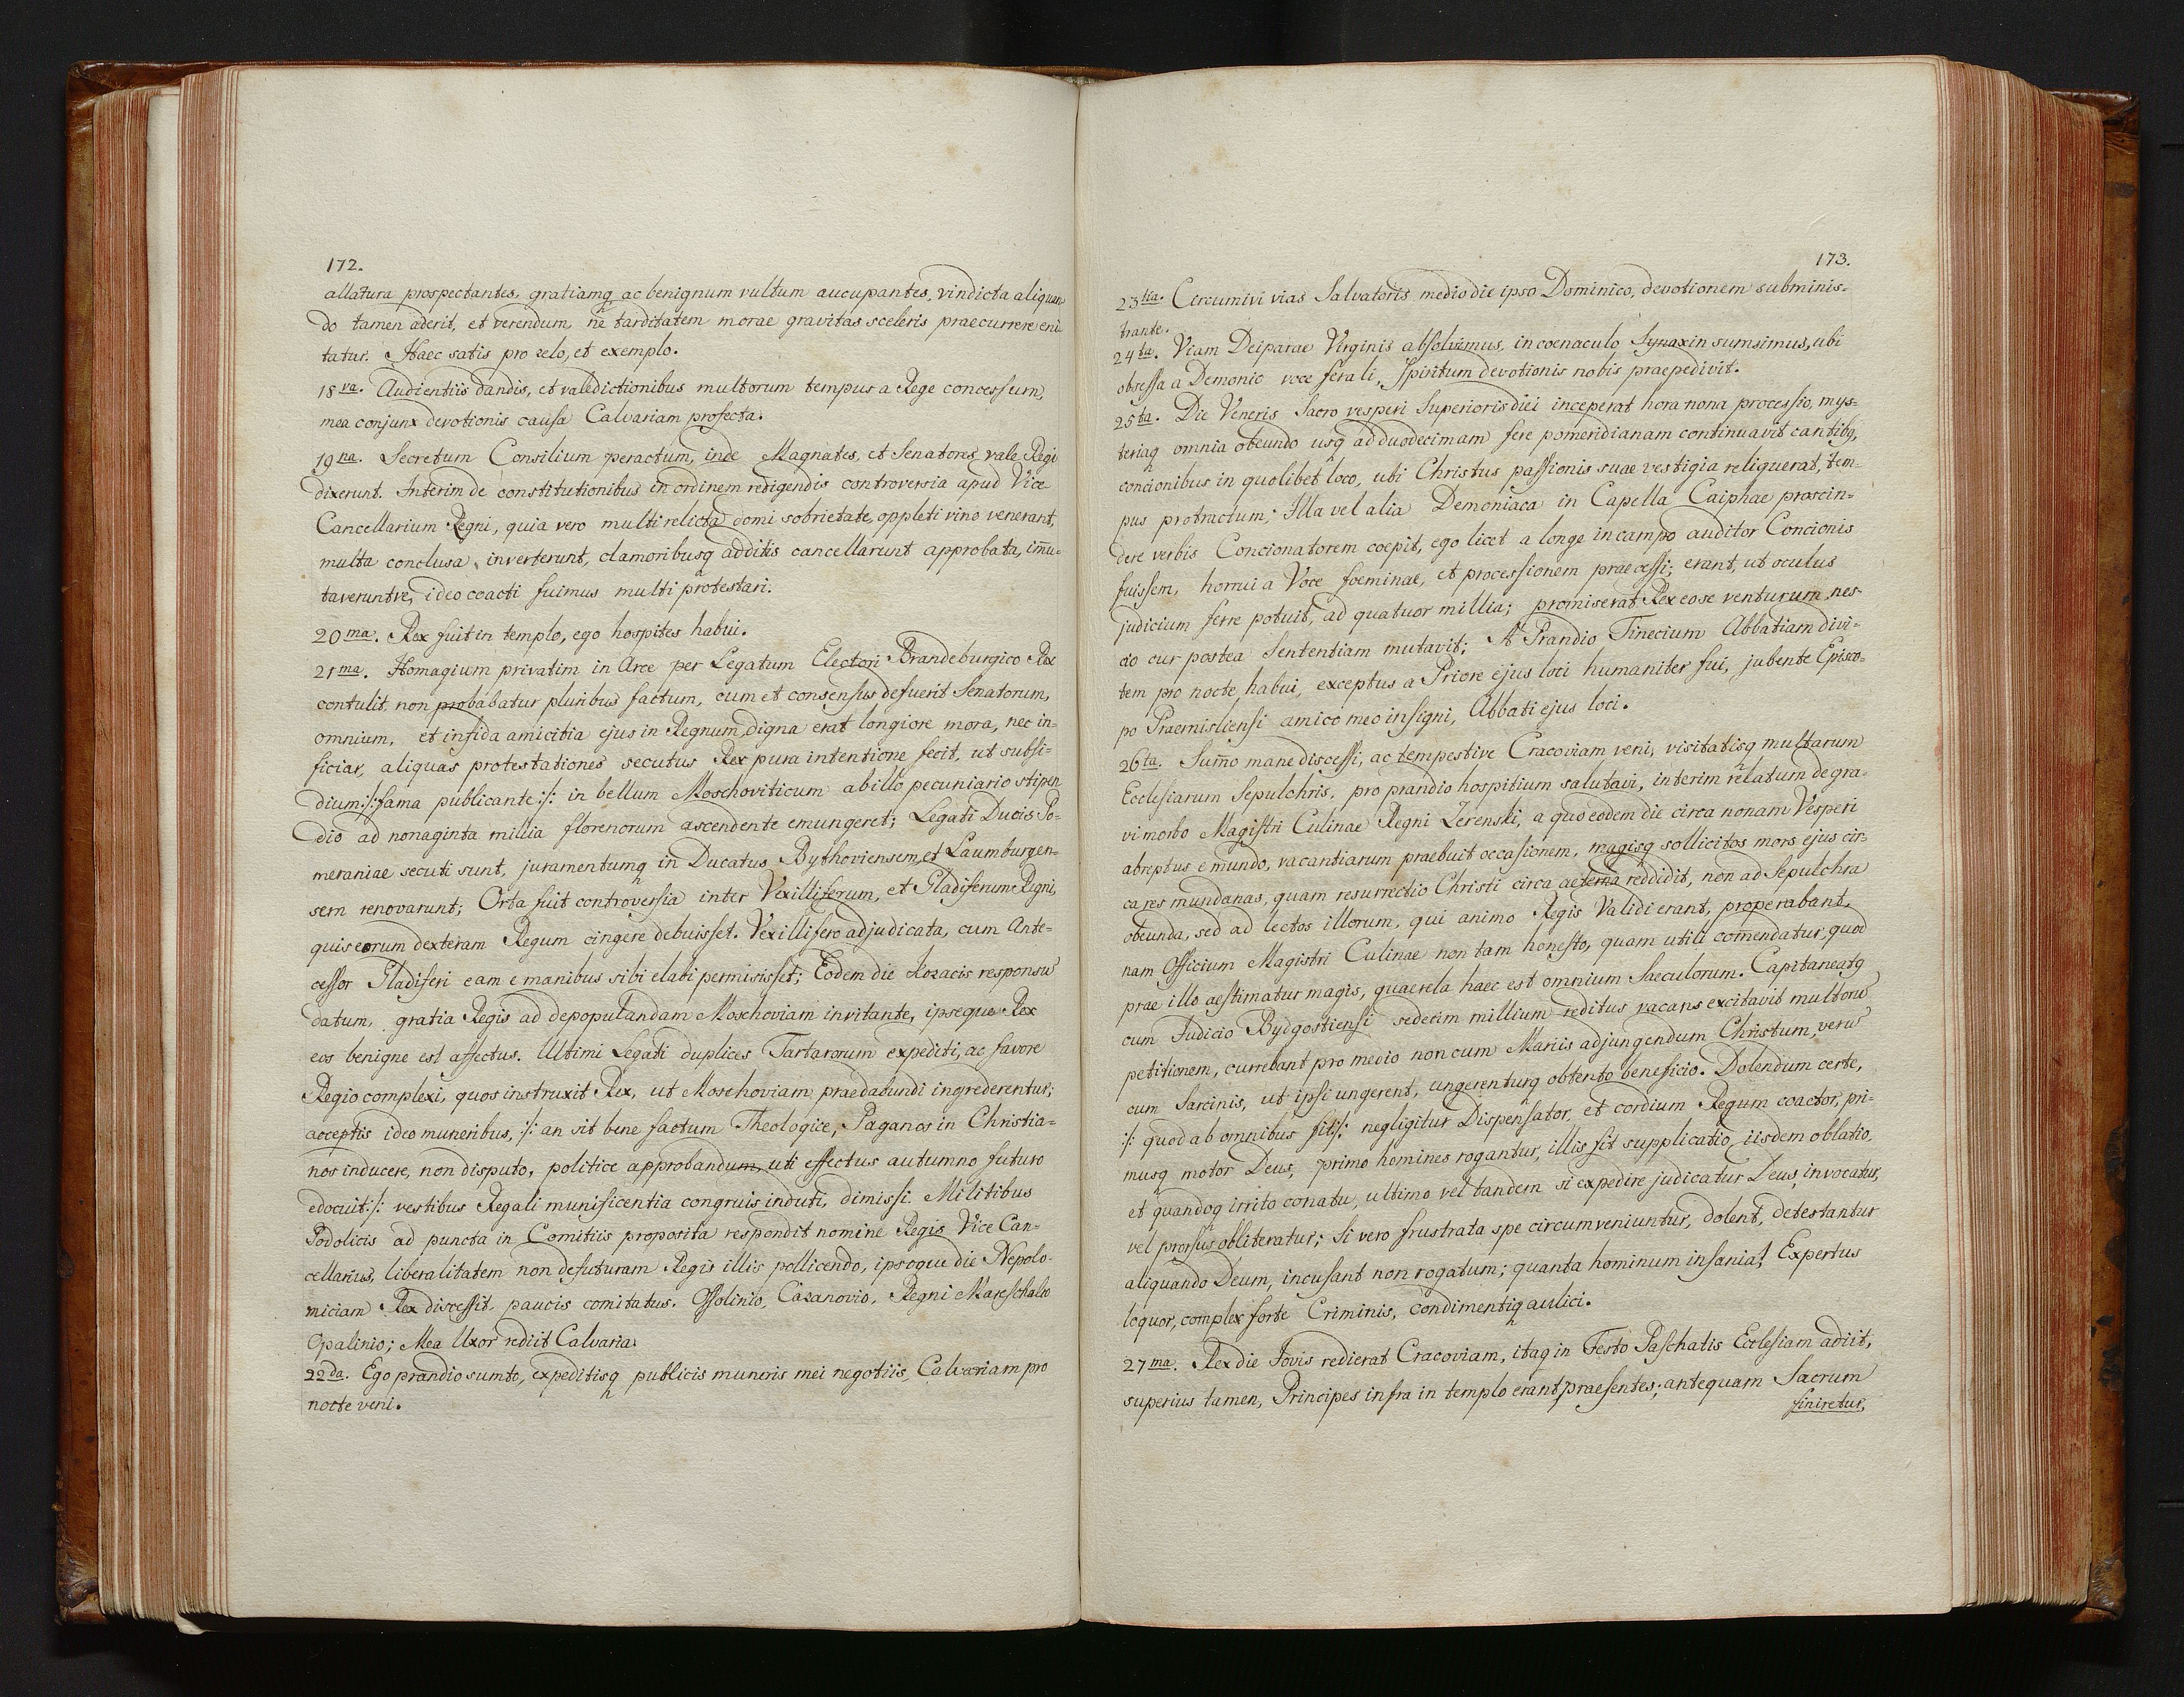 172.
allatura prospectantes, gratiamq ac benignum vultum aucupantes, vindicta aliquan
do tamen aderit, et verendum, ne tarditatem morae gravitas sceleris praecurrere eni
tatur. Haec satis pro zelo, et exemplo.
18va. Audientiis dandis, et valedictionibus multorum tempus a Rege concessum,
mea conjunx devotionis causa Calvariam profecta.
19na. Secretum Consilium peractum, inde Magnates, et Senatores vale Regi
dixerunt. Interim de constitutionibus in ordinem redigendis controversia apud Vice
Cancellarium Regni, quia vero multi relicta domi sobrietate, oppleti vino venerant,
multa conclusa inverterunt, clamoribusq additis cancellarunt approbata, im̄u-
taveruntve, ideo coacti fuimus multi protestari.
20ma. Rex fuit in templo, ego hospites habui.
21ma. Homagium privatim in Arce per Legatum Electori Brandeburgico Rex
contulit, non probabatur pluribus factum, cum et consensus defuerit Senatorum,
omnium, et infida amicitia ejus in Regnum, digna erat longiore mora, nec in-
ficiar, aliquas protestationes secutus Rex pura intentione fecit, ut subsi-
dium :/: fama publicante :/: in bellum Moschoviticum ab illo pecuniario stipen
dio ad nonaginta millia florenorum ascendente emungeret; Legati Ducis Po-
meraniae secuti sunt, juramentumq in Ducatus Bythoviensem, et Laumburgen-
sem renovarunt; Orta fuit controversia inter Vexilliferum, et Gladiferum Regni,
quis eorum dexteram Regum cingere debuisset. Vexillifero adjudicata, cum Ante-
cessor Gladiferi eam e manibus sibi elabi permisisset; Eodem die Kozacis responsū
datum, gratia Regis ad depopulandam Moschoviam invitante, ipseque Rex
eos benigne est affectus. Ultimi Legati duplices Tartarorum expediti, ac favore
Regio complexi, quos instruxit Rex, ut Moschoviam praedabundi ingrederentur;
acceptis ideo muneribus, :/: an sit bene factum Theologice, Paganos in Christia-
nos inducere, non disputo, politice approbandum, uti effectus autumno futuro
edocuit :/: vestibus Regali munificentia congruis induti, dimissi. Militibus
Podolicis ad puncta in Comitiis proposita respondit nomine Regis Vice Can-
cellarius, liberalitatem non defuturam Regis illis pollicendo, ipsoque die Nepolo-
miciam Rex discessit, paucis comitatus. Ossolinio, Cazanovio, Regni Mareschalco
Opalinio; Mea Uxor rediit Calvaria.
22da. Ego prandio sumto, expeditisq publicis muneris mei negotiis, Calvariam pro
nocte veni.
173.
23tia. Circumivi vias Salvatoris medio die ipso Dominico, devotionem subminis-
trante.
24ta. Viam Deiparae Virginis absolvimus, in coenaculo Synaxin sumsimus, ubi
obsessa a Demonio voce ferali, Spiritum devotionis nobis praepedivit.
25ta. Die Veneris Sacro vesperi Superioris diei inceperat hora nona processio, mys-
teriaq omnia obeundo usq ad duodecimam fere pomeridianam continuavit cantibq,
concionibus in quolibet loco, ubi Christus passionis suae vestigia reliquerat, tem-
pus protractum; Illa vel alia Demoniaca in Capella Caiphae proscin-
dere verbis Concionatorem coepit, ego licet a longe in campo auditor Concionis
fuissem, horrui a Voce foeminae, et processionem praecessi; erant, ut oculus
judicium ferre potuit, ad quatuor millia; promiserat Rex eo se venturum, nes-
cio cur postea Sententiam mutavit; A Prandio Tinecium Abbatiam divi-
tem pro nocte habui, exceptus a Priore ejus loci humaniter fui, jubente Episco-
po Praemisliensi amico meo insigni, Abbati ejus loci.
26ta. Sum̄o mane discessi, ac tempestive Cracoviam veni, visitatisq multarum
Ecclesiarum Sepulchris, pro prandio hospitium salutavi, interim relatum de gra-
vi morbo Magistri Culinae Regni Zerenski, a quo eodem die circa nonam Vesperi
abreptus e mundo, vacantiarum praebuit occasionem, magisq sollicitos mors ejus cir-
ca res mundanas, quam resurrectio Christi circa aeterna reddidit, non ad Sepulchra
obeunda, sed ad lectos illorum, qui animo Regis Validi erant, properabant,
nam Officium Magistri Culinae non tam honesto, quam utili com̄endatur, quod
prae illo aestimatur magis, quaerela haec est omnium Saeculorum. Capitaneatq
cum Judicio Bydgostiensi sedecim millium reditus vacans excitavit multorū
petitionem, currebant pro medio non cum Mariis ad jungendum Christum, verū
cum Sarcinis, ut ipsi ungerent, ungerenturq obtento beneficio. Dolendum certe,
:/: quod ab omnibus fit :/: negligitur Dispensator, et cordium Regum coactor, pri-
musq motor Deus, primo homines rogantur, illis fit supplicatio, iisdem oblatio,
et quandoq irrito conatu, ultimo vel tandem si expedire judicatur Deus, invocatur,
vel prorsus obliteratur; Si vero frustrata spe circumveniuntur, dolent, detestantur
aliquando Deum, incusant non rogatum; quanta hominum insania! Expertus
loquor, complex forte Criminis, condimentiq aulici.
27ma. Rex die Jovis redierat Cracoviam, itaq in Festo Paschatis Ecclesiam adiit,
superius tamen, Principes infra in templo erant praesentes; antequam Sacrum
finiretur,